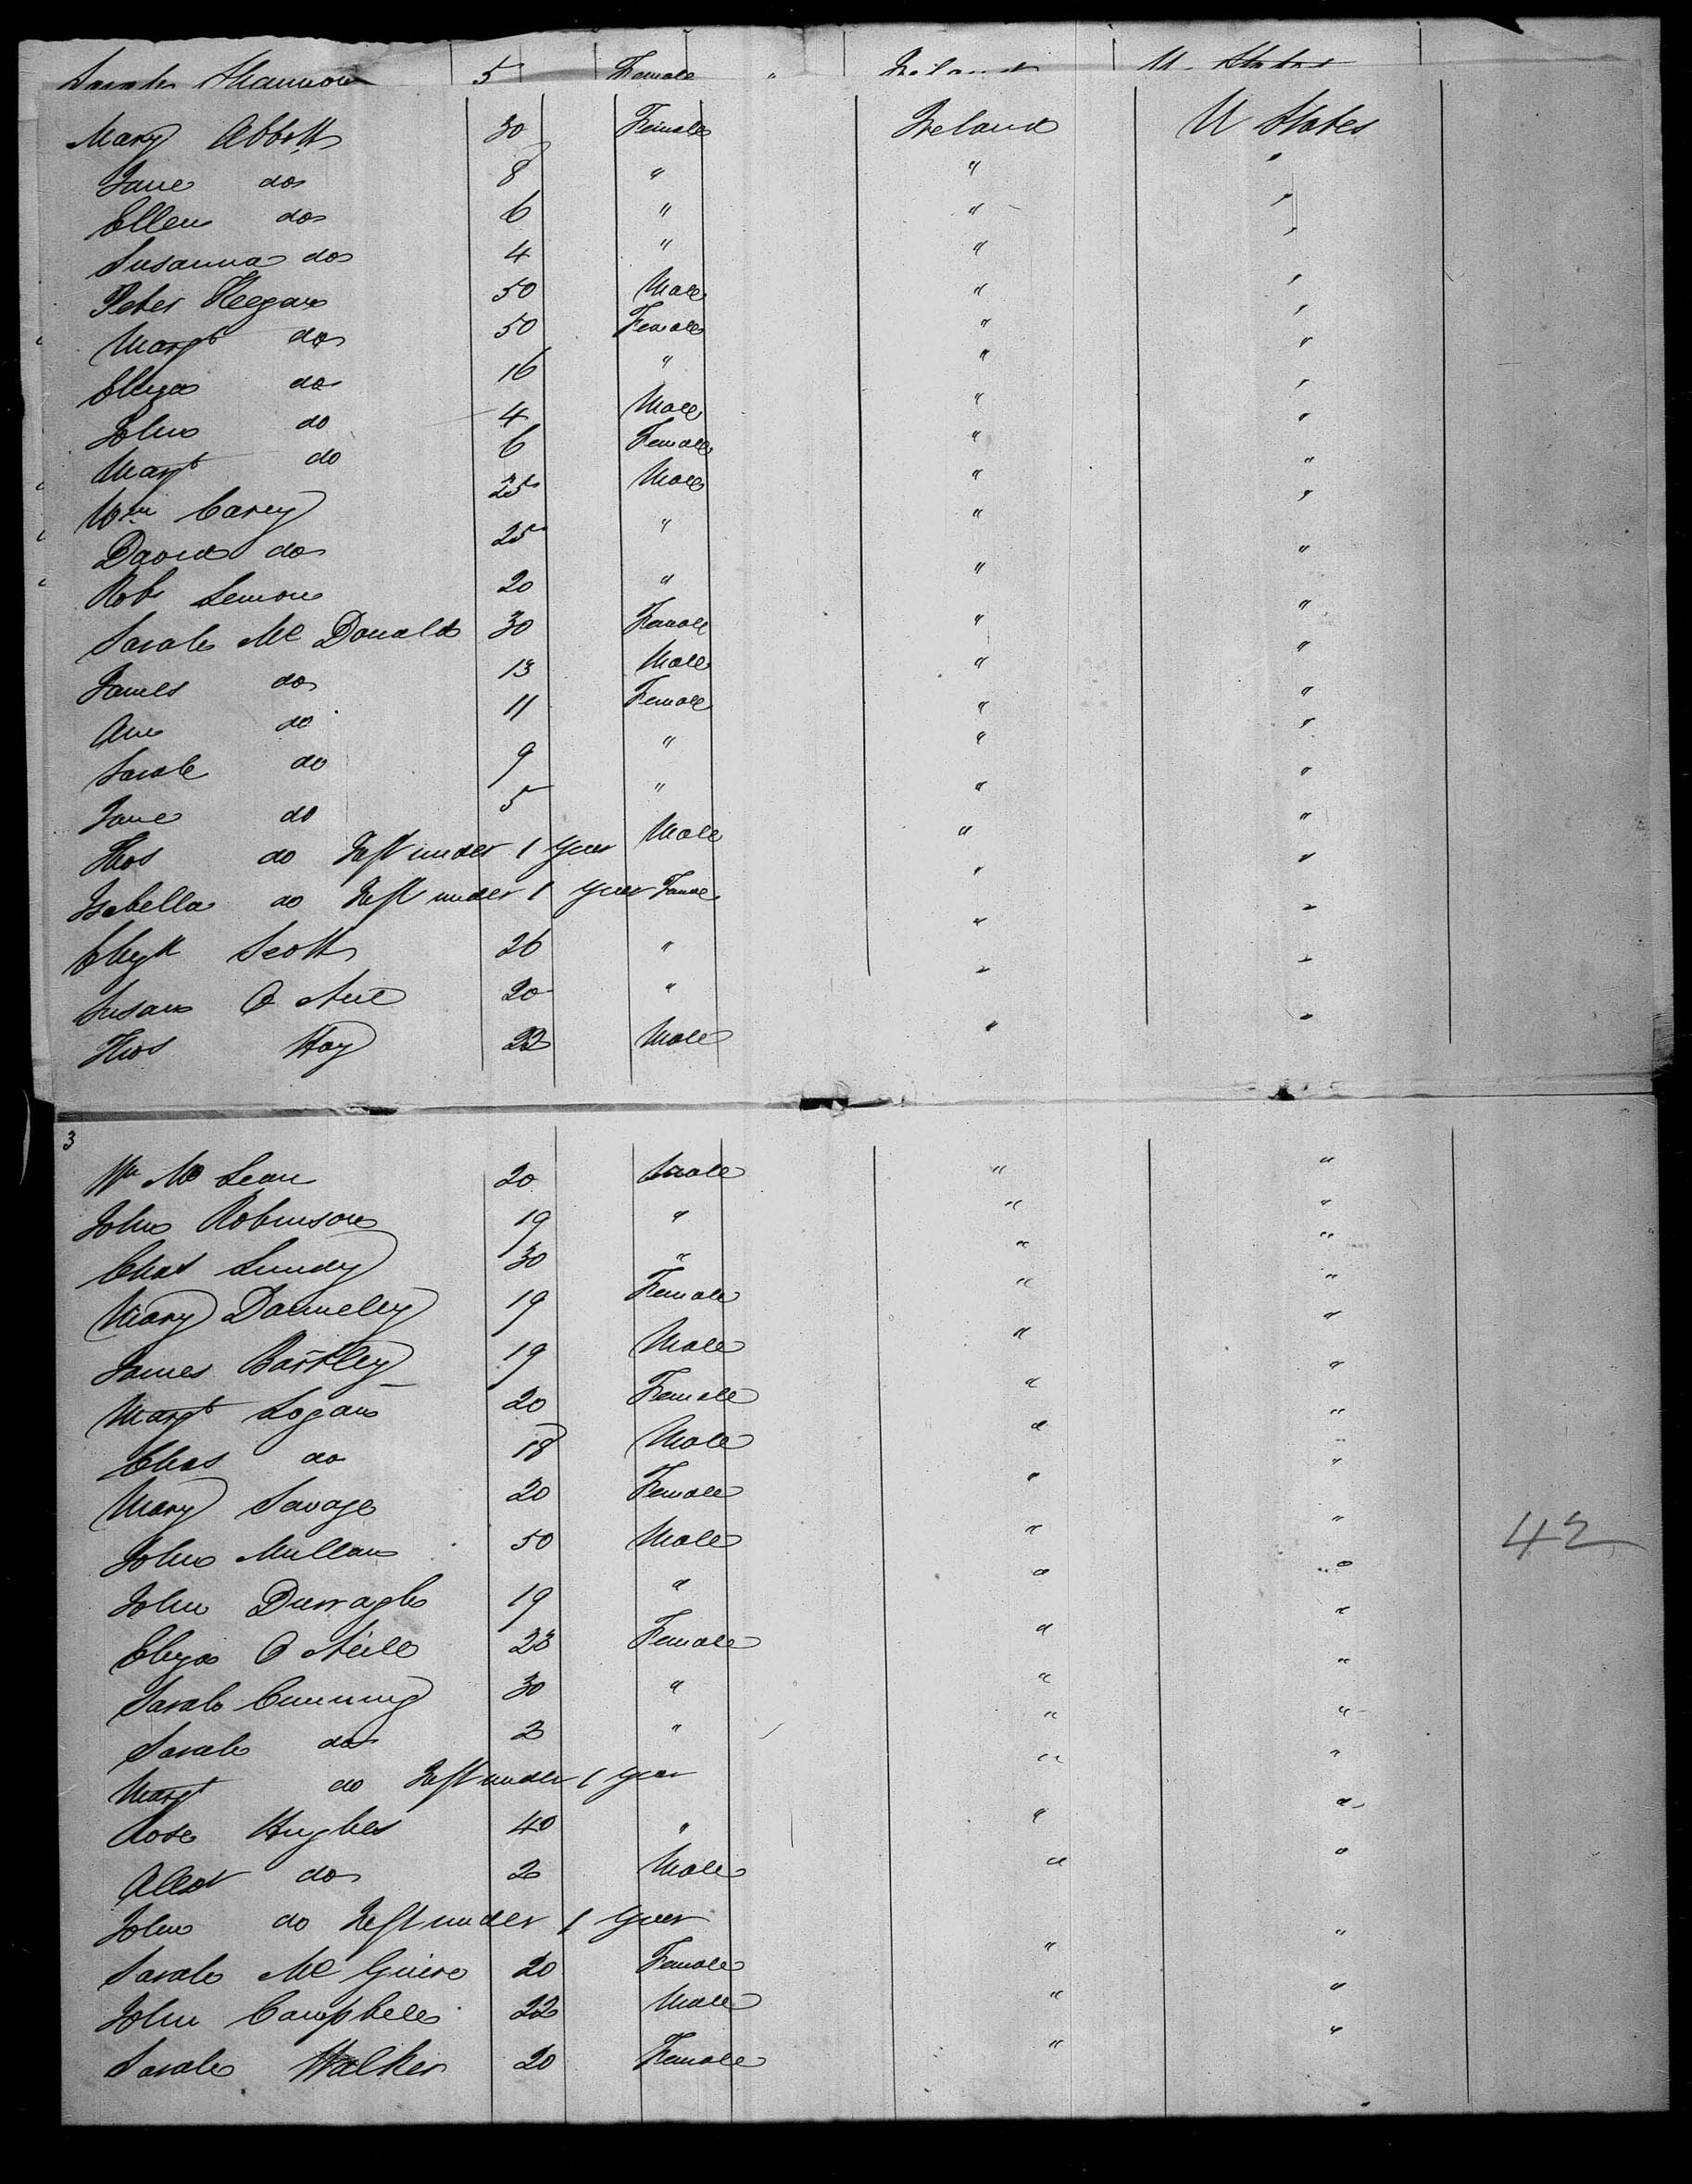 Sarah Shannon 5 Female " Ireland U. States
Mary Abbott 30 Female Ireland U States
Jane do 8 " " "
Ellen do 6 " " "
Susanna do 4 " " "
Peter Keegan 50 Male " "
Margt do 50 Female " "
Eliza do 16 " " "
John do 4 Male " "
Margt do 6 Female " "
Wm Carey 25 Male " "
David do 25 " " "
Robt Lemon 20 " " "
Sarah Mc Donald 30 Female " "
James do 13 Male " "
Ann do 11 Female " "
Sarah do 9 " " "
Jane do 5 " " "
Thos do Inft under 1 year Male " "
Isabella do Inft under 1 year Female " "
Elizth Scott 26 " " "
Susan O Neil 20 " " "
Thos Hay 22 Male " "
3
Wm Mc Lean 20 Male " "
John Robinson 19 " " "
Chas Lundy 30 " " "
Mary Donnelly 19 Female " "
James Bartley 19 Male " "
Margt Logan 20 Female " "
Chas do 18 Male " "
Mary Savage 20 Female " "
John Mullan 50 Male " "
42
John Durragh 19 " " "
Eliza O Neill 23 Female " "
Sarah Cumming 30 " " "
Sarah do 2 " " "
Margt do Inft under 1 year " "
Rose Hughes 40 " " "
do 2 Male " "
John do Inft under 1 year
Sarah Mc Guire 20 Female " "
John Campbell 22 Male " "
Sarah Walker 20 Female " "